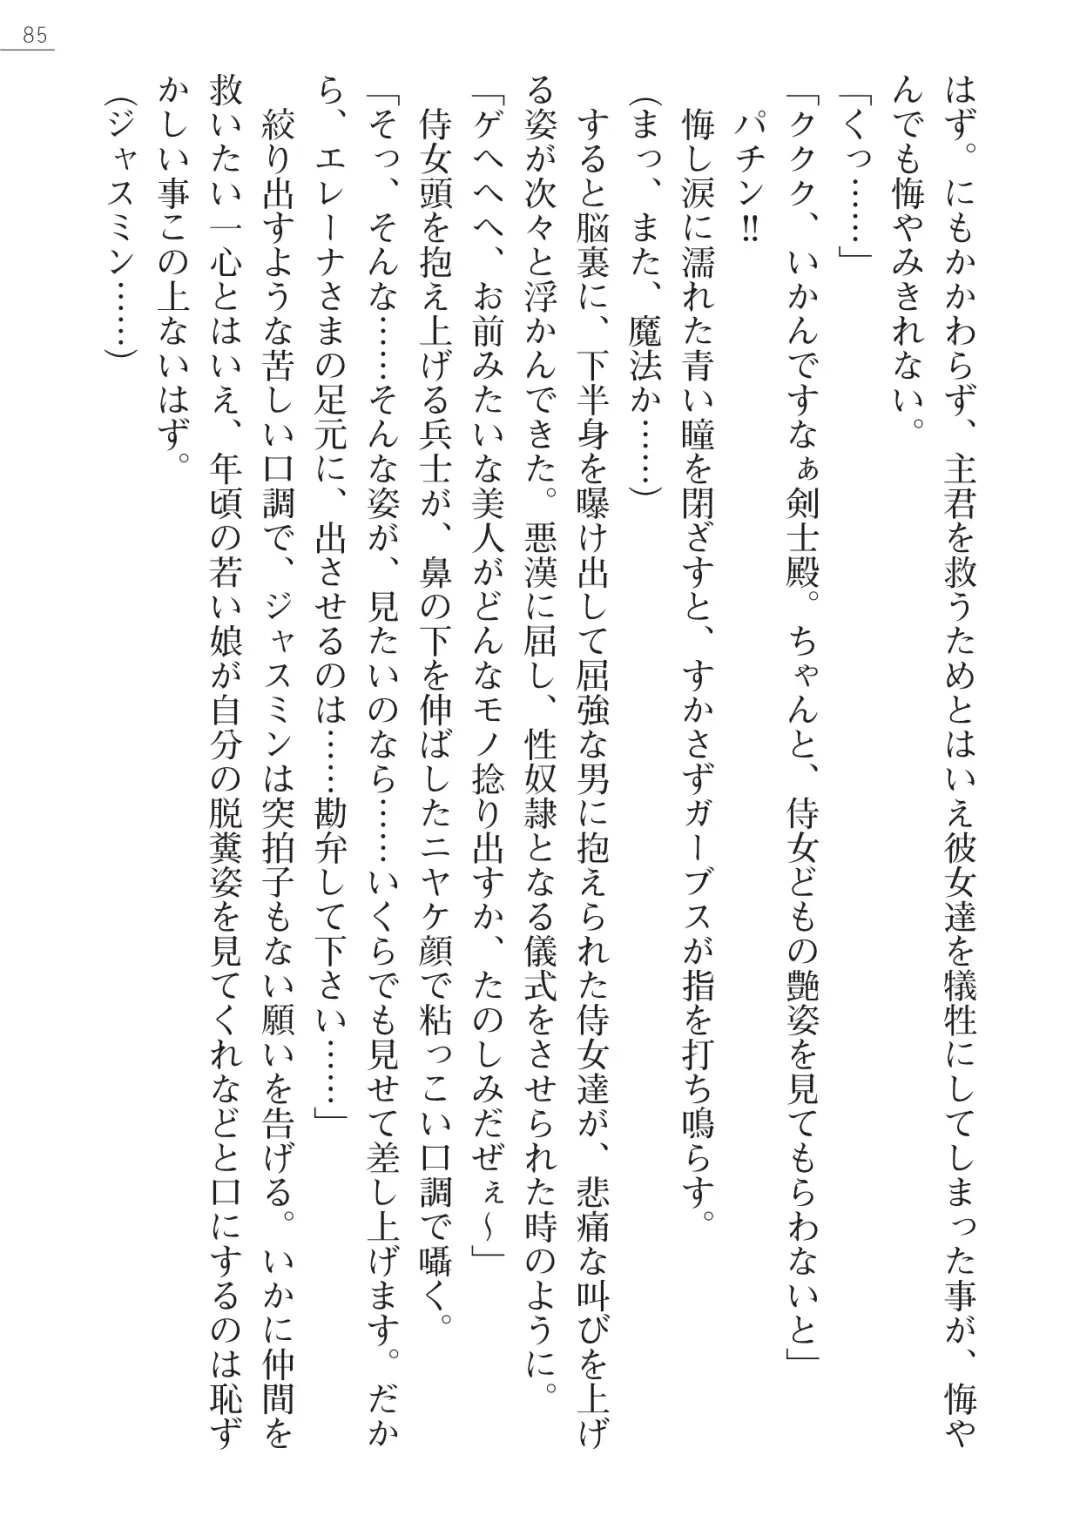 85
はず。にもかかわらず、主君を救うためとはいえ彼女達を犠牲にしてしまった事が、悔や
んでも悔やみきれない。
「くっ……」
「ククク、いかんですなぁ剣士殿。ちゃんと、侍女どもの艶姿を見てもらわないと」
パチン!!
悔し涙に濡れた青い瞳を閉ざすと、すかさずガーブスが指を打ち鳴らす。
(まっ、また、魔法か……)
すると脳裏に、下半身を曝け出して屈強な男に抱えられた侍女達が、悲痛な叫びを上げ
る姿が次々と浮かんできた。悪漢に屈し、性奴隷となる儀式をさせられた時のように。
「ゲヘヘヘ、お前みたいな美人がどんなモノ捻り出すか、たのしみだぜぇ～」
侍女頭を抱え上げる兵士が、鼻の下を伸ばしたニヤケ顔で粘っこい口調で囁く。
「そっ、そんな……そんな姿が、見たいのなら……いくらでも見せて差し上げます。だか
ら、エレーナさまの足元に、出させるのは……勘弁して下さい……」
絞り出すような苦しい口調で、ジャスミンは突拍子もない願いを告げる。いかに仲間を
救いたい一心とはいえ、年頃の若い娘が自分の脱糞姿を見てくれなどと口にするのは恥ず
かしい事この上ないはず。
(ジャスミン……)